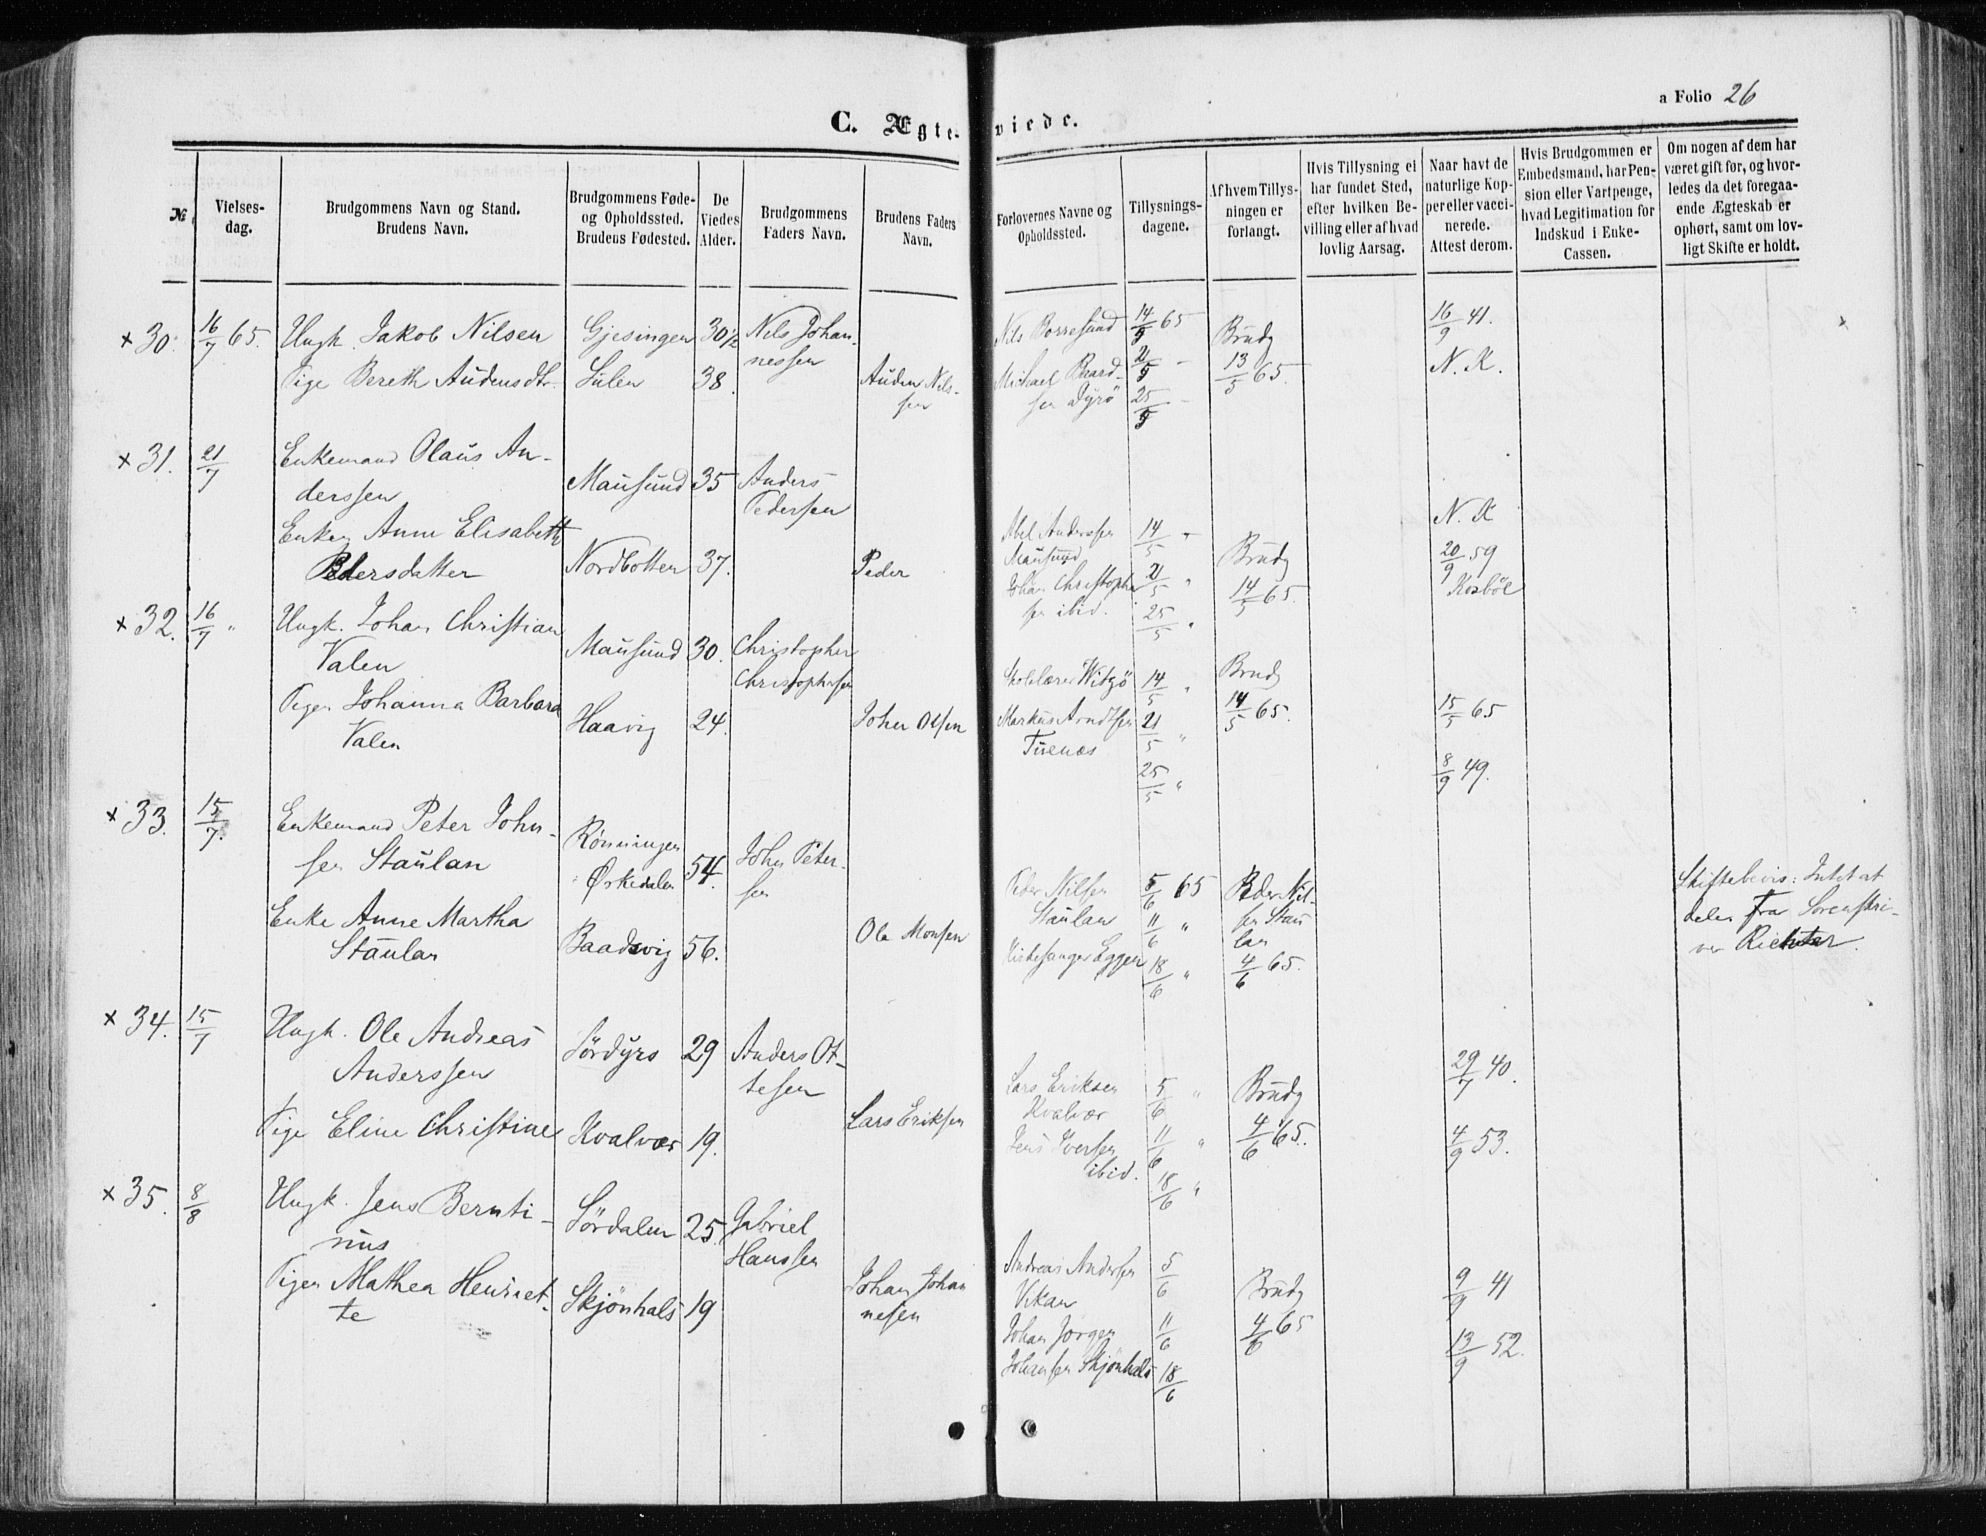 a Folio 26
C. Ægteviede.
№
Vielses-
dag.
Brudgommens Navn og Stand.
Brudens Navn.
Brudgommens Føde-
og Opholdssted.
Brudens Fødested.
De
Viedes
Alder.
Brudgommens
Faders Navn.
Brudens Faders
Navn.
Forlovernes Navne og
Opholdssted.
Tillysnings-
dagene.
Af hvem Tillys-
ningen er
forlangt.
Hvis Tillysning ei
har fundet Sted,
efter hvilken Be-
villing eller af hvad
lovlig Aarsag.
Naar havt de
naturlige Kop-
per eller vacci-
nerede.
Attest derom.
Hvis Brudgommen er
Embedsmand, har Pen-
sion eller Vartpenge,
hvad Legitimation for
Indskud i Enke-
Cassen.
Om nogen af dem har
været gift før, og hvor-
ledes da det foregaa-
ende Ægteskab er
ophørt, samt om lov-
ligt Skifte er holdt.
× 30. 16/7 65. Ungk. Jakob Nilsen Gjesingen 30½ Nils Johan-
nessen
Pige Bereth Audensdtr. Sulen 38. Auden Nils-
sen
Nils Borresund 14/5 65 Brudg 16/9 41.
Michael Beard- 21/5 - 13/5 65. N. K.
sen Dyrö 25/5 -
× 31. 21/7 Enkemand Olaus An-
derssen Mausund 35 Anders
Pedersen
Enken Anne Elisabeth
Pedersdatter Nordbotten 37. Peder
Abel Anderssen 14/5 " N. K
Mausund Brudg 20/9 59
Johan Christopher- 21/5 " 14/5 65.
sen ibid. 25/5 "
× 32. 16/7 " Ungk. Johan Christian
Valen Mausund 30. Christopher
Christophersen
Pigen Johanna Barbara
Valen Haavig 24. Johan Olsen
Skolelærer Witzö 14/5 " Brudg
Markus Arndtsen 21/5 " 14/5 65. 15/5 65
Tuenæs 25/5 " 8/9 49.
× 33. 15/7. Enkemand Peter John-
sen Staulan Rønningen
Ørkedalen 54. John Peter-
sen
Enke Anne Martha
Staulan Baadsvig 56. Ole Monsen
Peder Nilsen 5/6 65 Peder Nil-
Staulan 11/6 " sen Stau
lan
Kirkesanger Eggen 18/6 " 4/6 65.
Skiftebevis: Intet at
dele, fra Sorenskri-
ver Richter.
× 34. 15/7 Ungk. Ole Andreas
Anderssen Sördyrö 29 Anders Ot-
tesen
Pige Eline Christine Kvalvær 19. Lars Eriksen
Lars Eriksen 5/6 " Brudg 29/7 40.
Kvalvær
Jens Iversen 11/6 " 4/6 65. 4/9 53.
ibid. 18/6 "
× 35. 8/8 Ungk. Jens Bernti-
nus Sördalen 25. Gabriel
Hanssen
Pigen Mathea Henriet-
te Skjönhals 19 Johan Johan
nesen
Andreas Andersen 5/6 Brudg 9/9 41
Vikan
Johan Jørgen 11/6 4/6 65 13/9 52.
Johansen Skjönhals 18/6